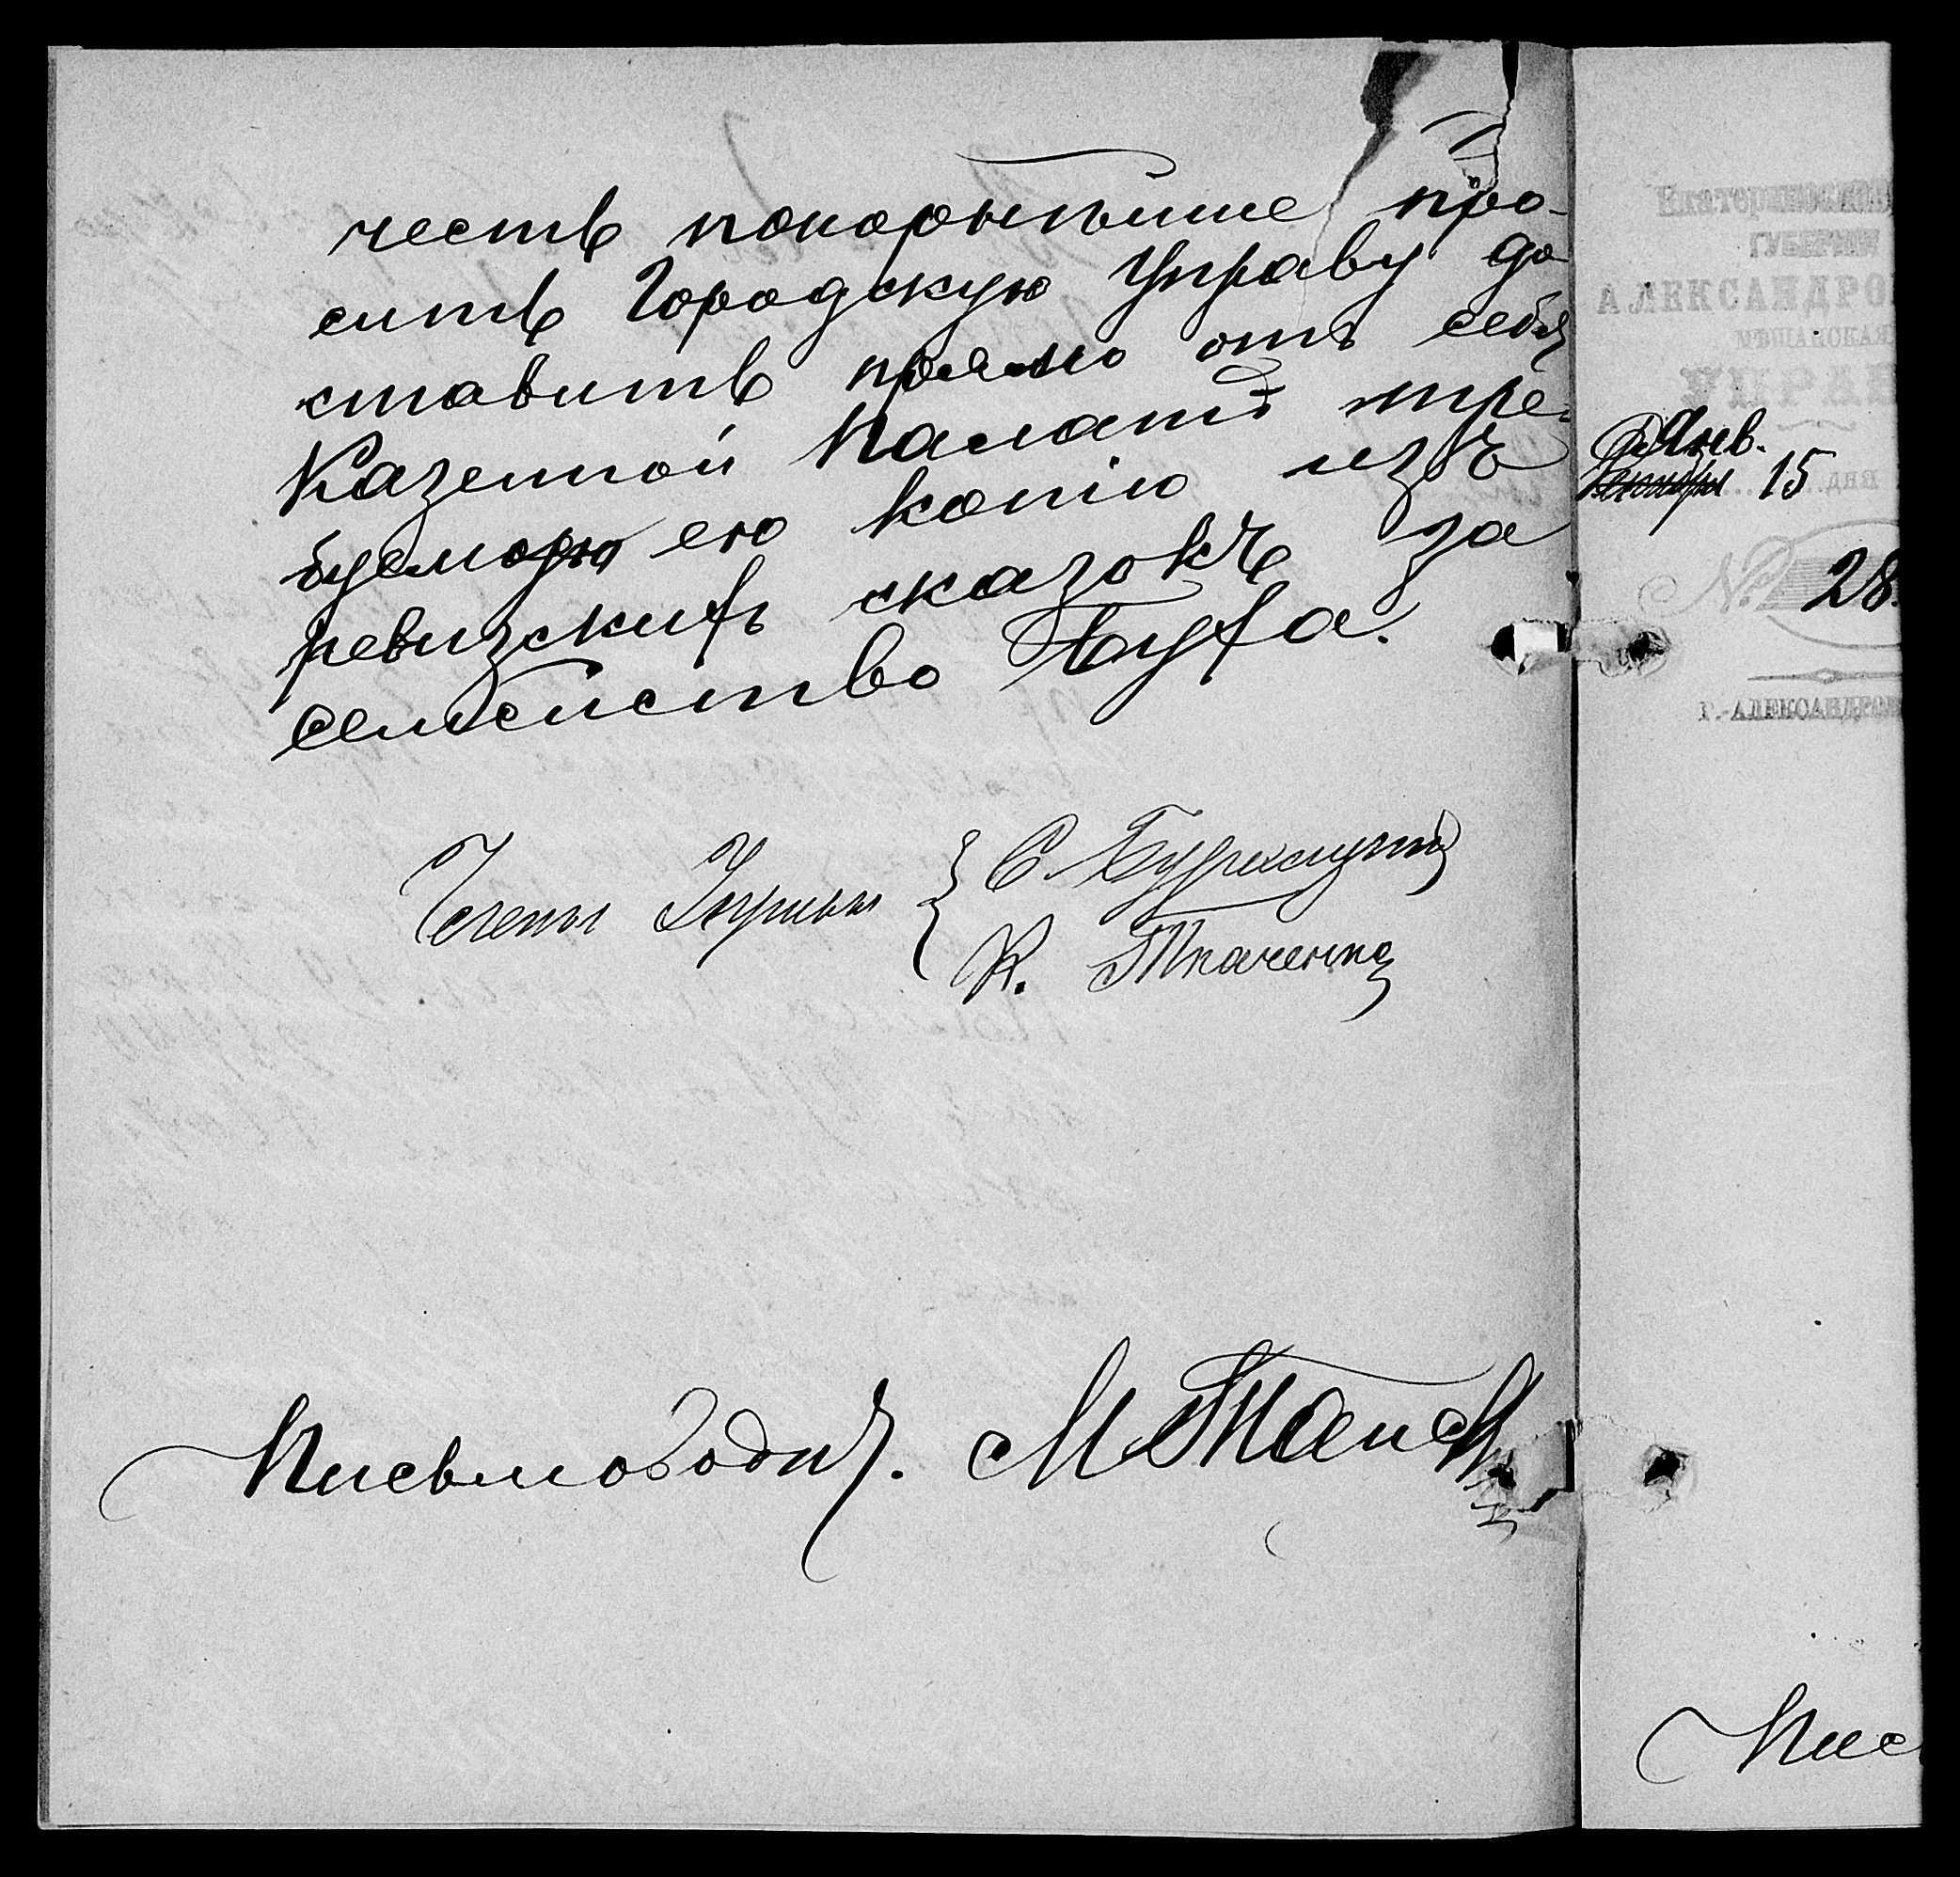 честь покорнѣйше про-
сить Городскую Управу до
ставить прямо отъ себя
Казенной Палатѣ тре-
буемую ею копію изъ
ревизскихъ сказокъ за
семейство Буха.
Члены Управы { С.
К. Ткаченко
Письмоводит. М
Екатеринославск
ГУБЕРНІИ
АЛЕКСАНДРО
МѢЩАНСКАЯ
УПРАВ
Янв.
15 дня
№ 28.
Г.-АЛЕКСАНДРОВ
Пис